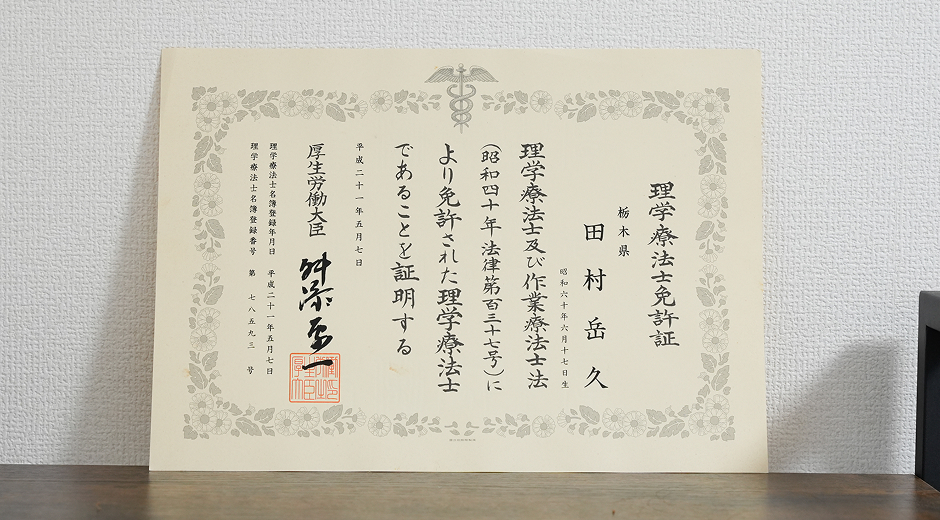 理学療法士免許証
栃木県
田村岳久
昭和六十年六月十七日生
理学療法士及び作業療法士法
(昭和四十年法律第百三十七号)に
より免許された理学療法士
であることを証明する
平成二十一年五月七日
厚生労働大臣 舛添要一
理学療法士名簿登録年月日 平成二十一年五月七日
理学療法士名簿登録番号 第 七八五九三 号